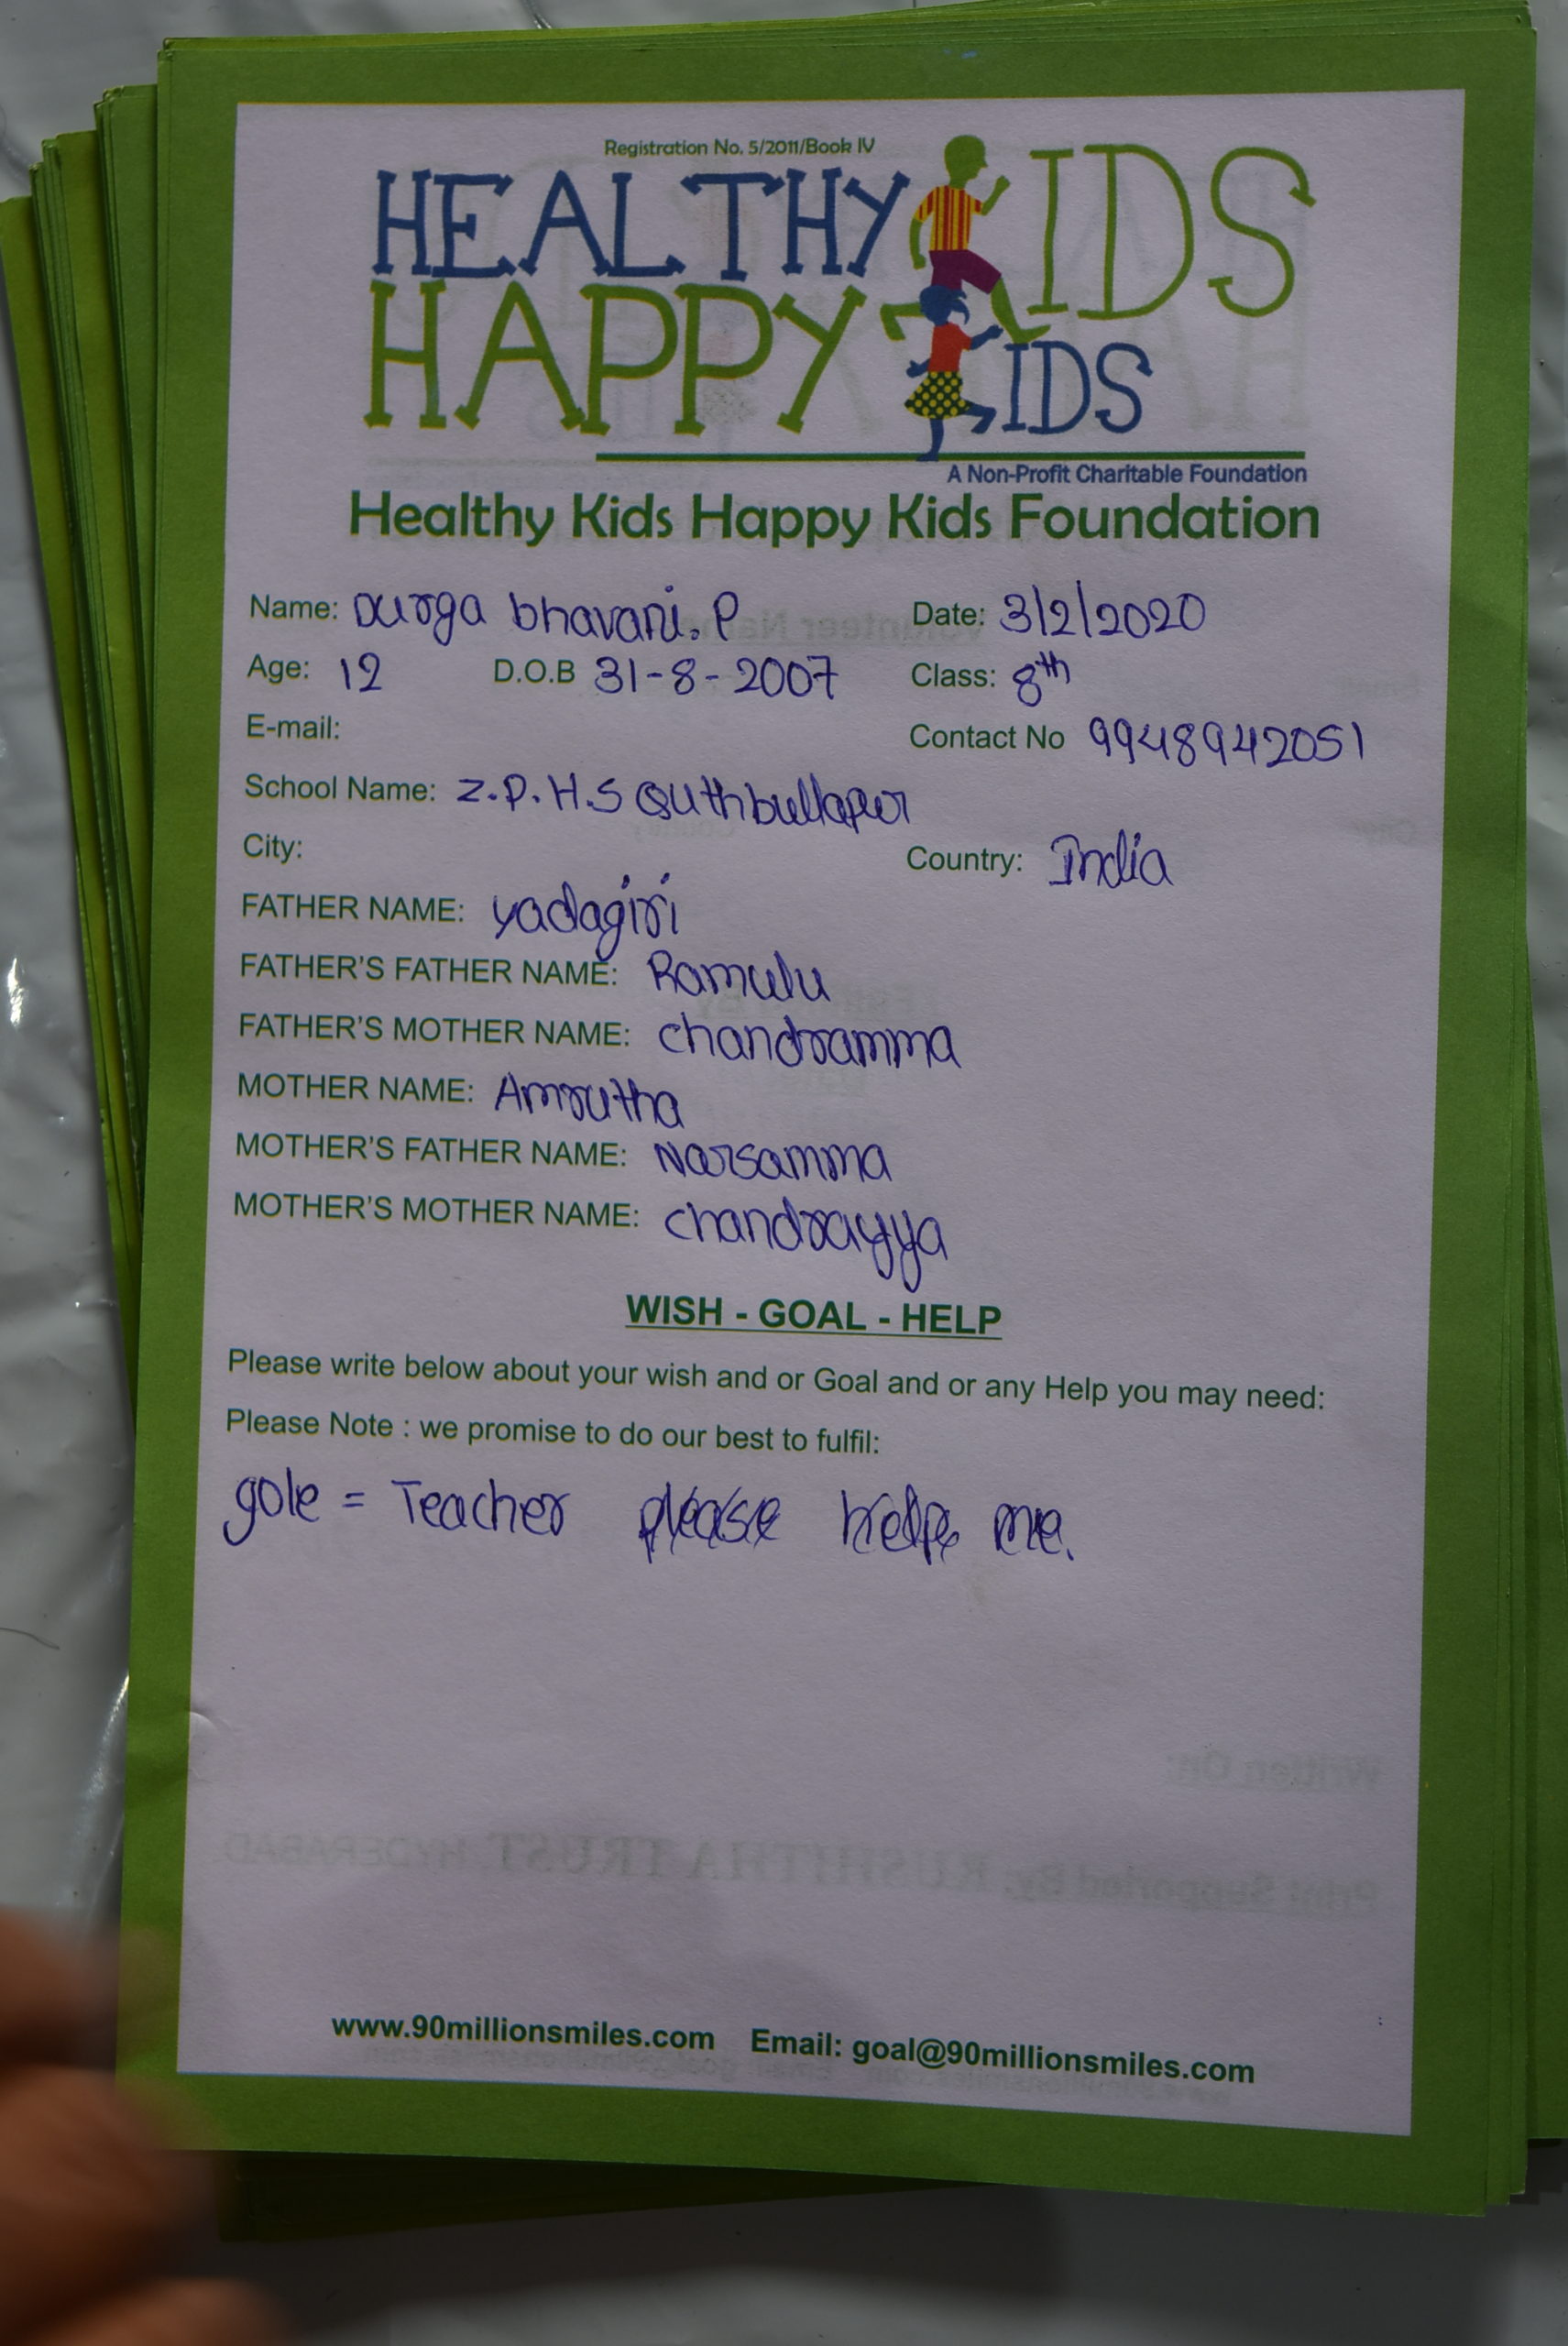 Registration No. 5/2011/Book IV
HEALTHY KIDS
HAPPY KIDS
A Non-Profit Charitable Foundation
Healthy Kids Happy Kids Foundation
Name: Durga bhavani. P Date: 3/2/2020
Age: 12 D.O.B 31-8-2007 Class: 8th
E-mail: Contact No 9948942051
School Name: Z.P.H.S Quthbullapur
City: Country: India
FATHER NAME: yadagiri
FATHER'S FATHER NAME: Ramulu
FATHER'S MOTHER NAME: chandramma
MOTHER NAME: Amrutha
MOTHER'S FATHER NAME: Narsamma
MOTHER'S MOTHER NAME: chandrayya
WISH - GOAL - HELP
Please write below about your wish and or Goal and or any Help you may need:
Please Note : we promise to do our best to fulfil:
gole = Teacher please help me.
Written On:
Print Supported By: RUSHITHA TRUST HYDERABAD
www.90millionsmiles.com Email: goal@90millionsmiles.com